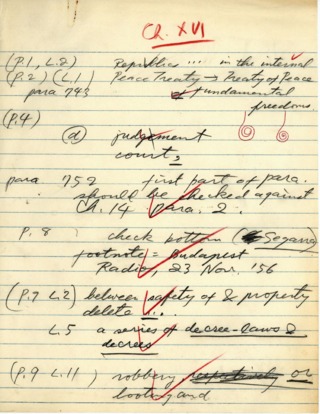 Ch. XVI
(P.1, L.2) Republics .... in the internal
P.2) (L.1) Peace Treaty → Treaty of Peace
para 743 of fundamental
freedoms.
(P.4)
(d) judgement
courts
para 752 first part of para.
should be checked against
Ch. 14 para. 2.
P. 8) check bottom (Segarra)
footnote = Budapest
Radio, 23 Nov. '56
(P.7 L.2) between safety of & property
delete ....
L.5 a series of decree-laws &
decrees
(P.9 L.11) robbery respectively or
looting and